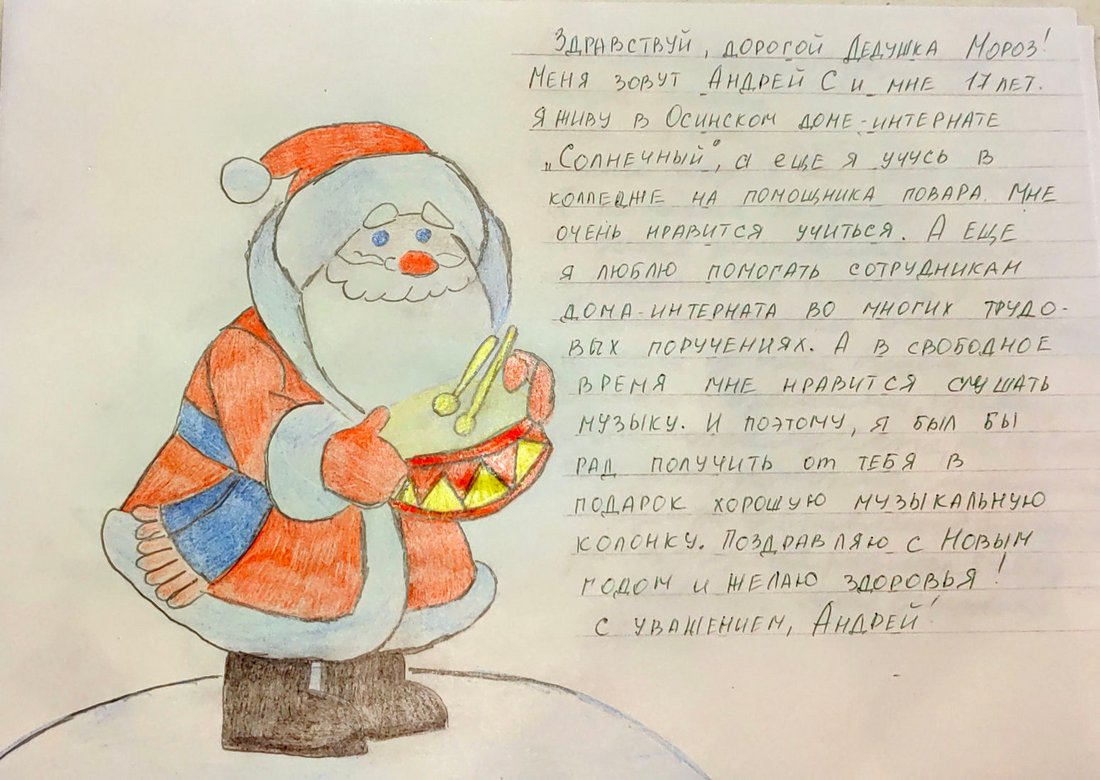 Здравствуй, дорогой Дедушка Мороз!
Меня зовут Андрей С и мне 17 лет.
Я живу в Осинском доме-интернате
„Солнечный", а еще я учусь в
колледже на помощника повара. Мне
очень нравится учиться. А еще
я люблю помогать сотрудникам
дома-интерната во многих трудо-
вых поручениях. А в свободное
время мне нравится слушать
музыку. И поэтому, я был бы
рад получить от тебя в
подарок хорошую музыкальную
колонку. Поздравляю с Новым
годом и желаю здоровья!
С уважением, Андрей!